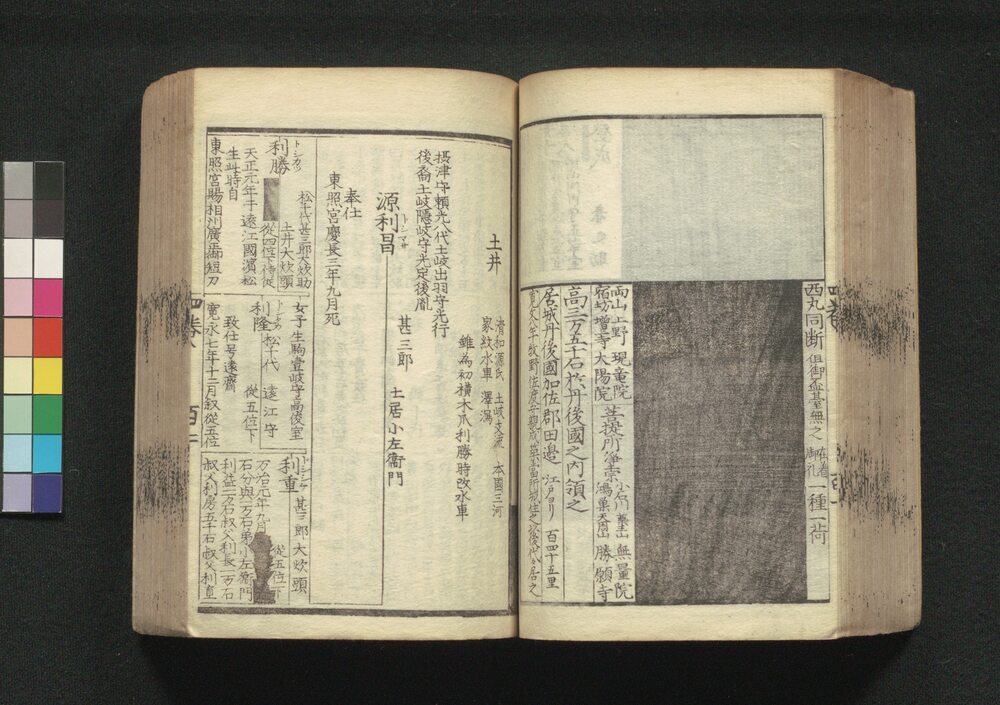 西丸同断 但御盃臺無之 御礼 一種一荷
両山上野 現竜院
宿坊増寺 大陽院
菩提所浄宗 小石川 無量院
鴻巣 勝願寺
高三万五千石於丹後國之内領之
居城丹後國加佐郡田邉 江戸ヨリ 百四十五里
土井
清和源氏 土岐支流 本國三河
家紋水車 澤瀉
雖為初横木爪利勝時改水車
摂津守頼光八代土岐出羽守光行
後裔土岐隠岐守光定後胤
源利昌 トシマサ 甚三郎 土居小左衛門
奉仕
東照宮慶長三年九月死
利勝 トシカツ
松千代甚三郎大炊助
土井大炊頭
従四位下侍従
天正元年 遠江國濱松
生
東照宮賜相州廣 短刀
女子 生駒壹岐守高俊室
利隆 トシタカ 松千代 遠江守
従五位下
致仕号遠齋
寛永七年十二月叙従五位
利重 トシシゲ 甚三郎 大炊頭
従五位下
万治元年九月
石分與一万石弟小左衛門
利益一万石叔父利長一万石
叔父利房五千石叔父利直